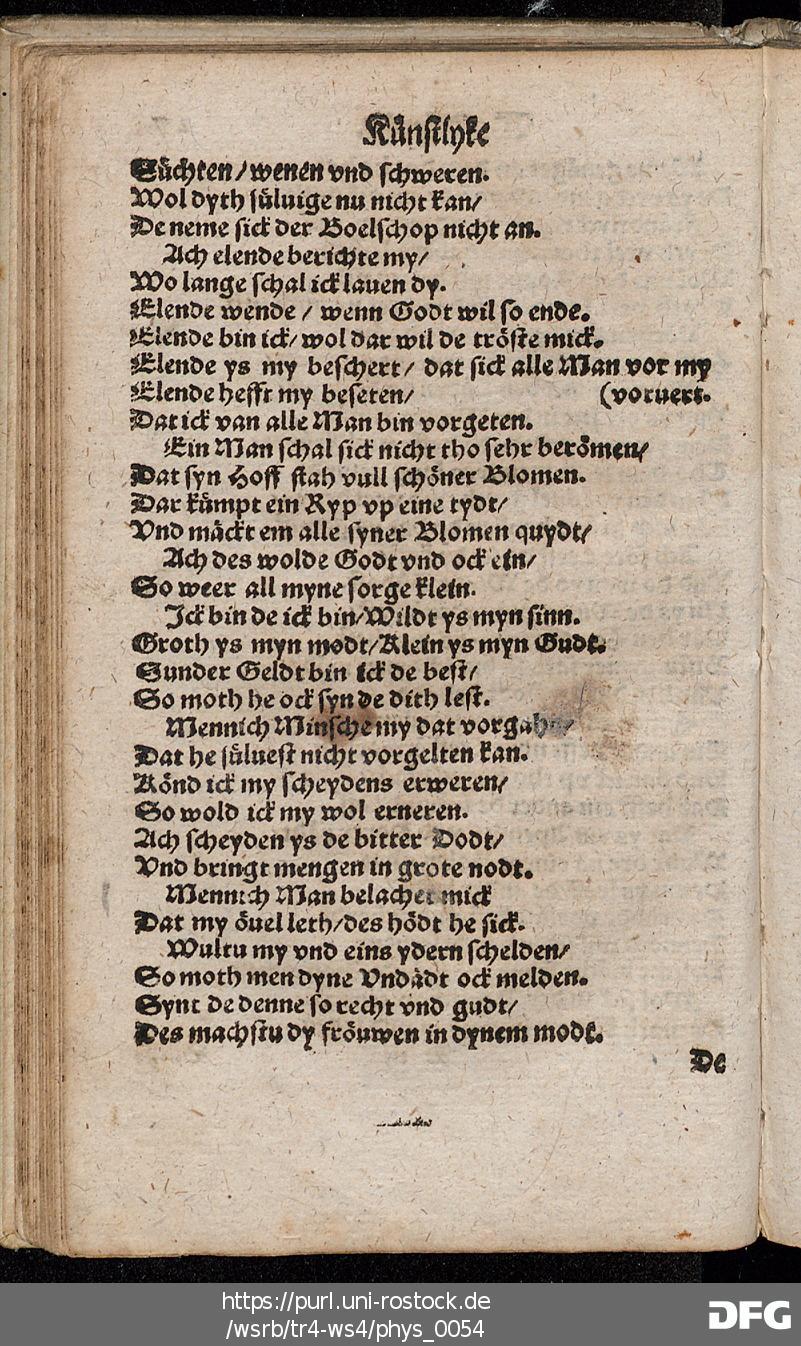 Künstlyke
Süchten/ wenen vnd schweren.
Wol dyth sülvige nu nicht kan/
De neme sick der Boelschop nicht an.
Ach elende berichte my/
Wo lange schal ick lauen dy.
Elende wende / wenn Godt wil so ende.
Elende bin ick/ wol dar wil de tröste mick.
Elende ys my beschert/ dat sick alle Man vor my
Elende hefft my beseten/ (voruert.
Dat ick van alle Man bin vorgeten.
Ein Man schal sick nicht tho sehr berömen/
Dat syn Hoff stah vull schöner Blomen.
Dar kümpt ein Ryp vp eine tydt/
Vnd mäckt em alle syner Blomen quydt/
Ach des wolde Godt vnd ock ein/
So weer all myne sorge klein.
Ick bin de ick bin/Wildt ys myn sinn.
Groth ys myn modt/Klein ys myn Gudt.
Sunder Geldt bin ick de best/
So moth he ock syn de dith lest.
Mennich Minsche my dat
Dat he süluest nicht vorgelten kan.
Könd ick my scheydens erweren/
So wold ick my wol erneren.
Ach scheyden ys de bitter Dodt/
Vnd bringt mengen in grote nodt.
Mennich Man belachet mick
Dat my öuel leth/des hödt he sick.
Wultu my vnd eins ydern schelden/
So moth men dyne Vndädt ock melden.
Synt de denne so recht vnd gudt/
Des machstu dy fröuwen in dynem modt.
De
https://purl.uni-rostock.de
/wsrb/tr4-ws4/phys_0054
DFG